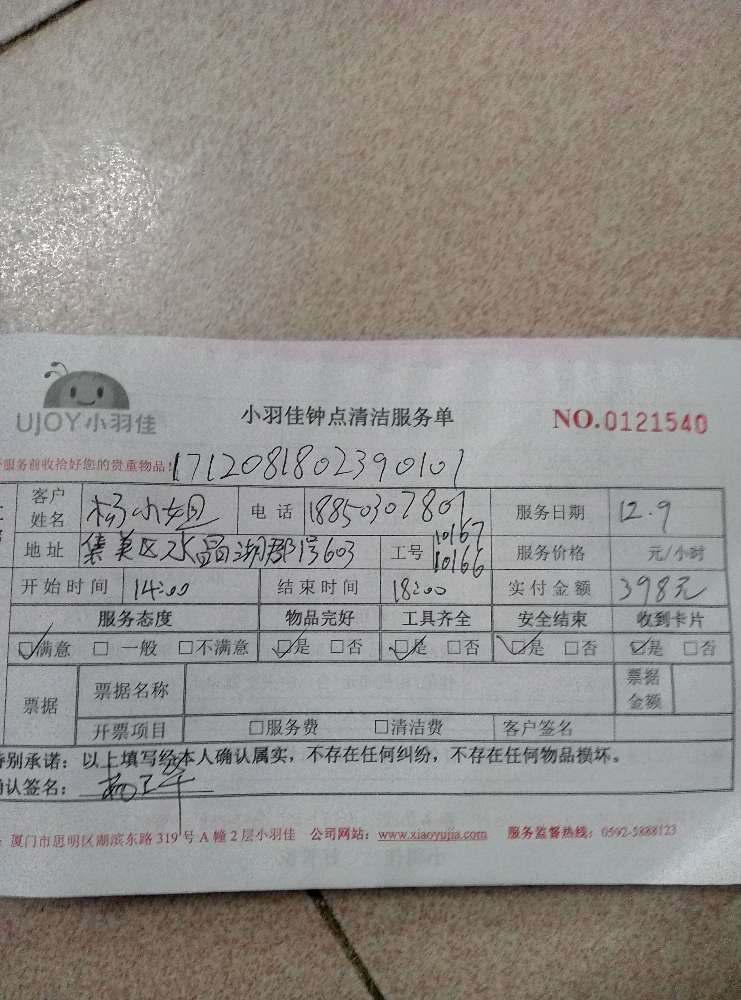 UJOY小羽佳
小羽佳钟点清洁服务单
NO.0121540
服务前收拾好您的贵重物品!
1712081802390101
客户姓名 杨小姐 电话 18850307801 服务日期 12.9
地址 集美区水晶湖郡1号603 工号 10167 10166 服务价格 元/小时
开始时间 14:00 结束时间 18:00 实付金额 398元
服务态度 物品完好 工具齐全 安全结束 收到卡片
☑满意 □一般 □不满意 ☑是 □否 ☑是 □否 ☑是 □否 ☑是 □否
票据 票据名称 票据金额
开票项目 □服务费 □清洁费 客户签名
特别承诺：以上填写经本人确认属实，不存在任何纠纷，不存在任何物品损坏。
确认签名：
厦门市思明区湖滨东路319号A幢2层小羽佳 公司网站：www.xiaoyujia.com 服务监督热线：0592-5888123